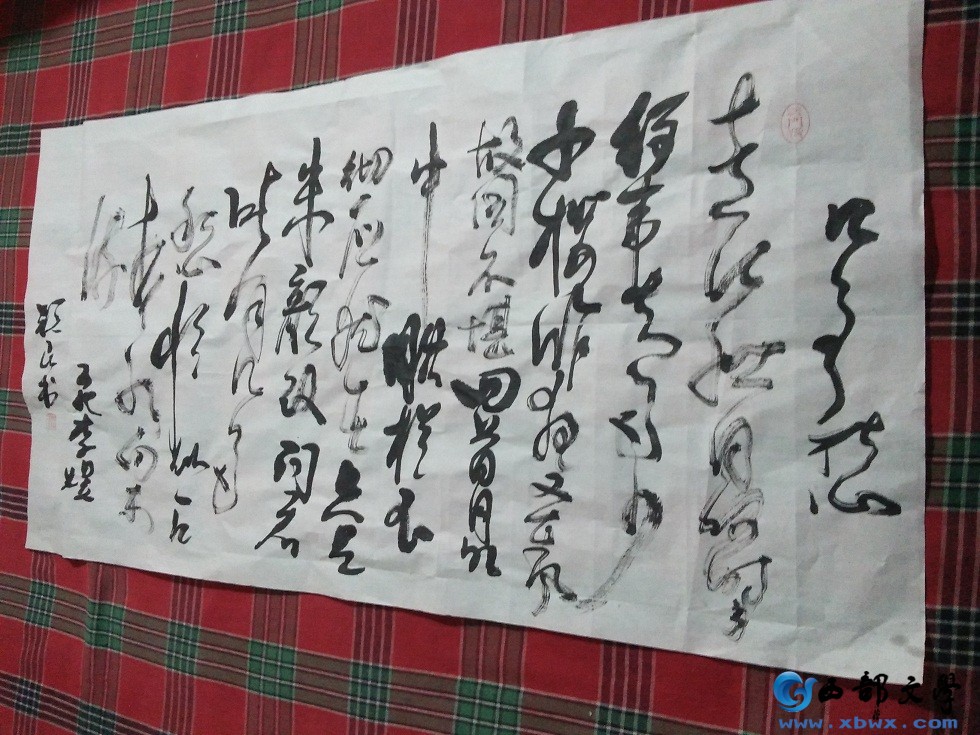 春花秋月何时了
往事知多少
小楼昨夜又东风
故国不堪回首月明
中雕栏玉
砌应犹在只是
朱颜改问君
能有几多
愁恰似一江
春水向东
流
五代李煜
书
西部文学
www.xbwx.com